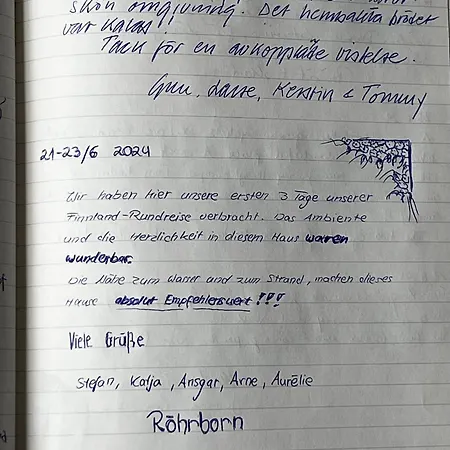 skön omgivning! Det hembakta brödet
var kalas!
Tack för en avkopplande vistelse.
Gun, Lasse, Kerstin & Tommy
21-23/6 2024
Wir haben hier unsere ersten 3 Tage unserer
Finnland-Rundreise verbracht. Das Ambiente
und die Herzlichkeit in diesem Haus waren
wunderbar.
Die Nähe zum Wasser und zum Strand, machen dieses
Hause absolut Empfehlenswert!!!
Viele Grüße
Stefan, Katja, Ansgar, Arne, Aurélie
Röhrborn